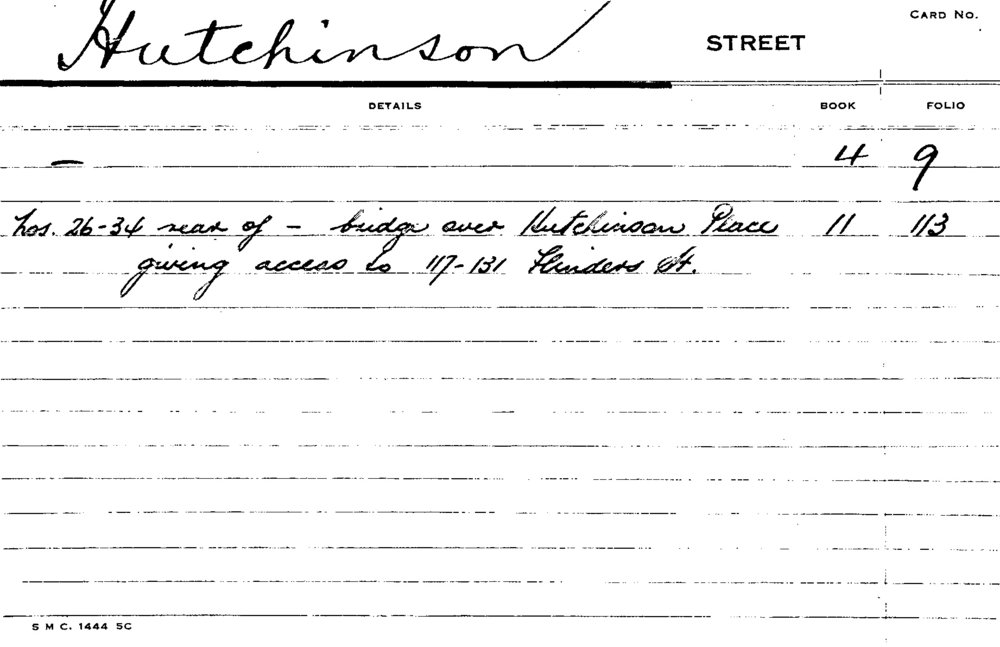 CARD No.
Hutchinson STREET
DETAILS BOOK FOLIO
— 4 9
Nos. 26-34 rear of - bridge over Hutchinson Place 11 113
giving access to 117-131 Flinders St.
S M C. 1444 5C